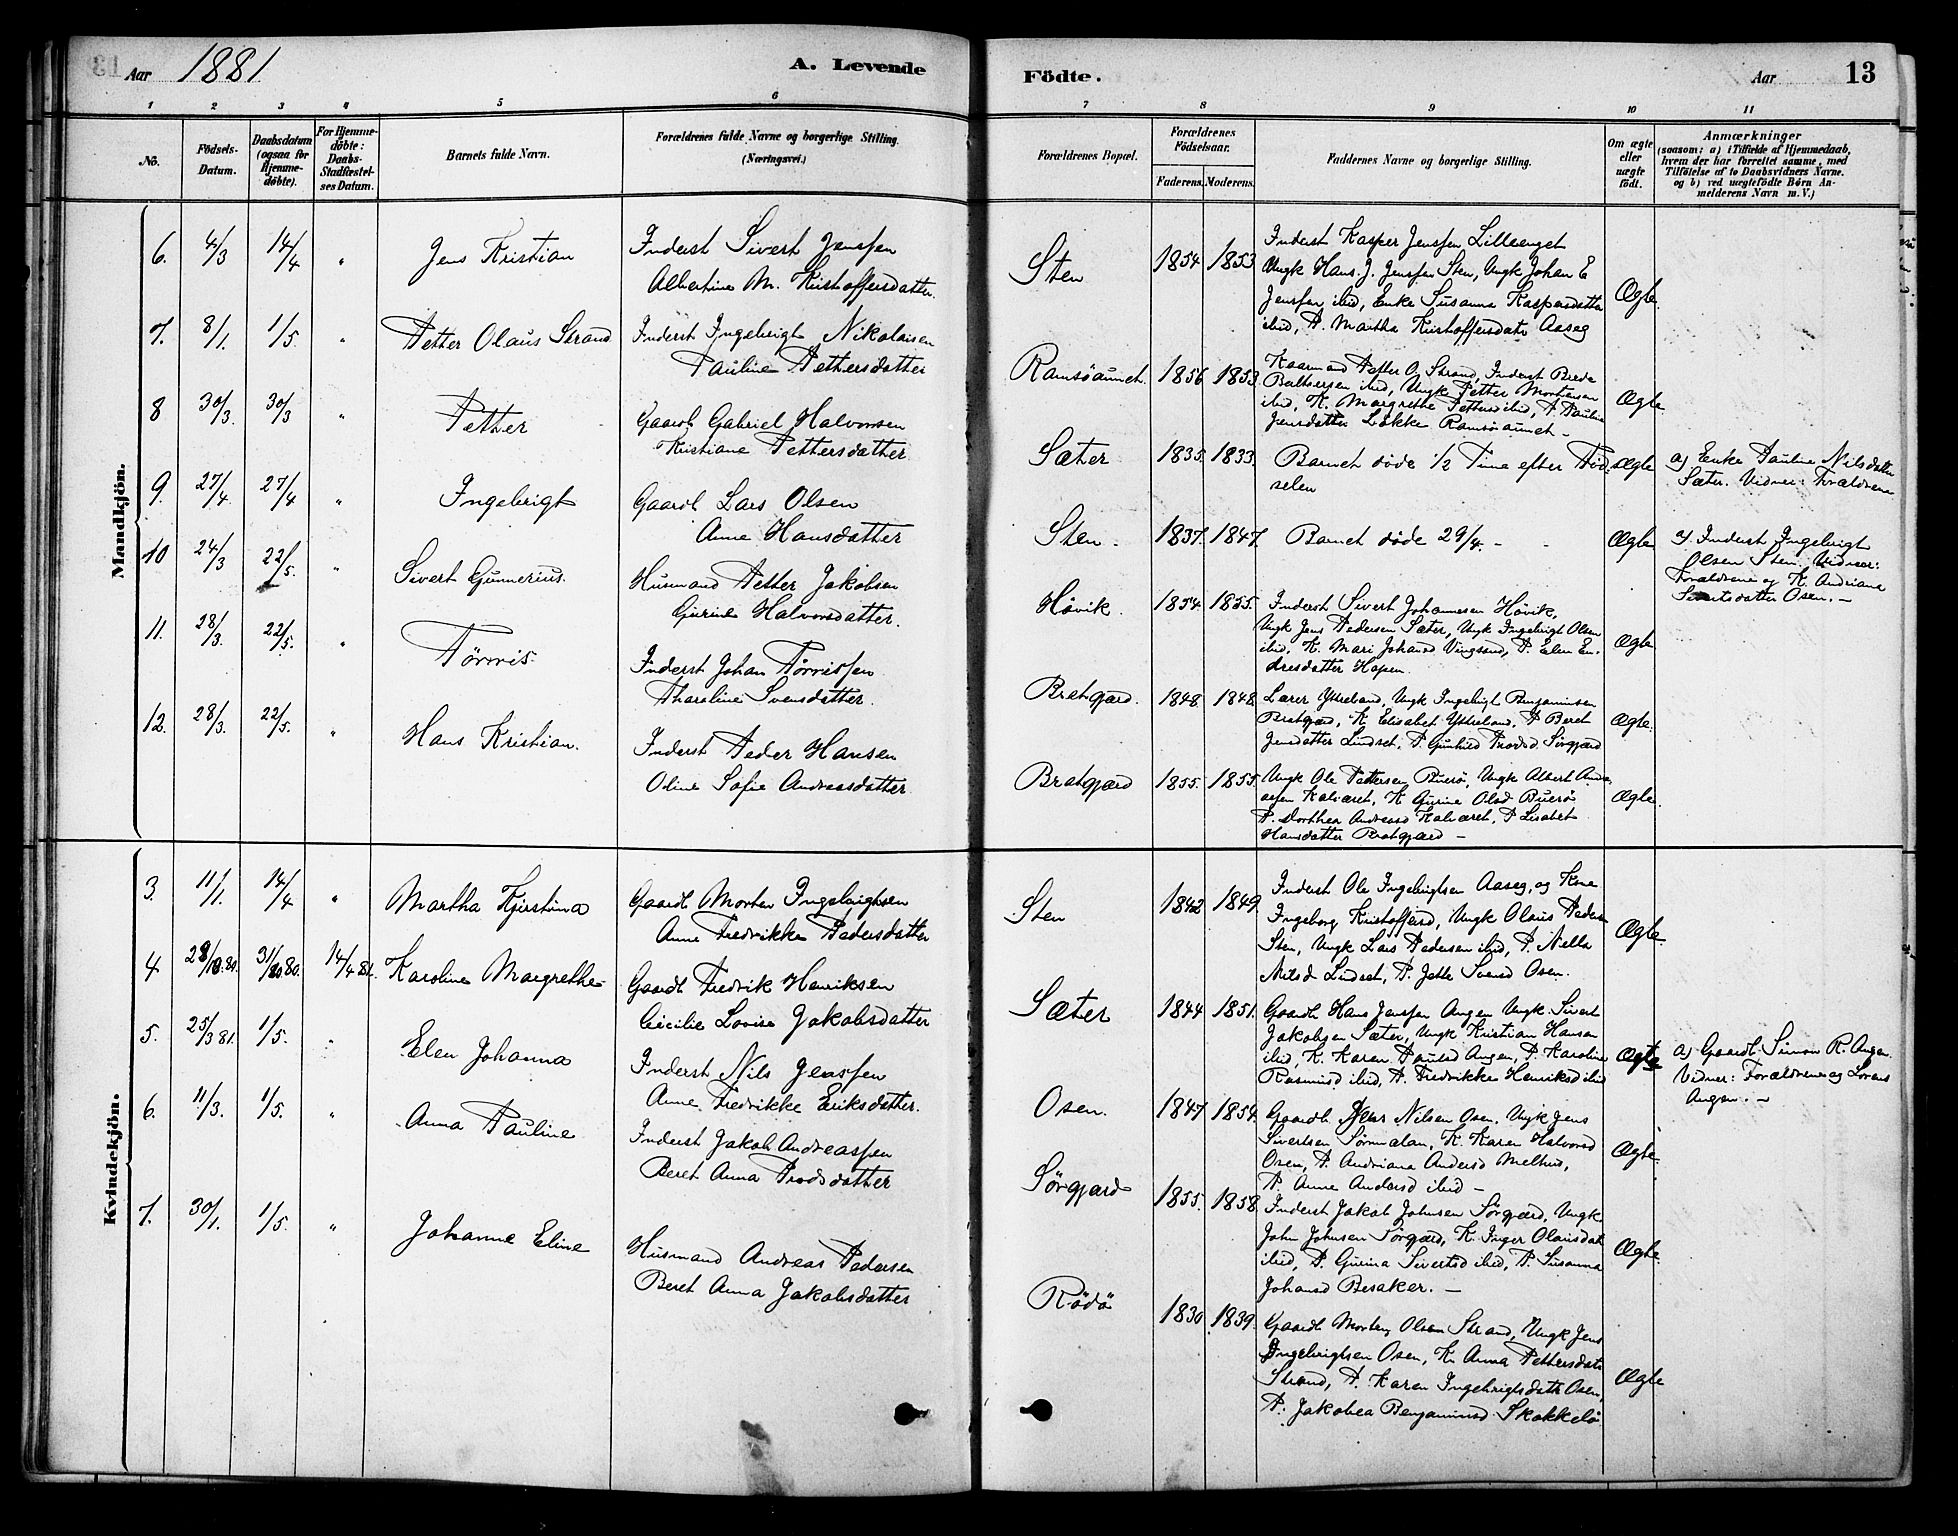 Aar 1881
A. Levende
Födte.
Aar
13
1 2 3 4 5 6 7 8 9 10 11
No.
Födsels-
Datum.
Daabsdatum
(ogsaa for
Hjemme-
döbte).
For Hjemme-
döbte:
Daabs-
Stadfæstel-
ses Datum.
Barnets fulde Navn.
Forældrenes fulde Navne og borgerlige Stilling.
(Næringsvei.)
Forældrenes Bopæl.
Forældrenes
Födselsaar.
Faderens. Moderens.
Faddernes Navne og borgerlige Stilling.
Om ægte
eller
uægte
födt.
Anmærkninger
(saasom: a) i Tilfælde af Hjemmedaab,
hvem der har forrettet samme, med
Tilföielse af to Daabsvidners Navne.
og b) ved uægtefödte Börn An-
melderens Navn m. V.)
Mandkjön.
6. 4/3 14/4 " Jens Kristian
Inderst Sivert Jenssen
Albertine M. Kristoffersdatter.
Sten
1854 1853
Inderst Kasper Jenssen Lilleenget
Ungk Hans J. Jenssen Sten, Ungk Johan E
Jenssen ibid, Enke Susanna Kaspersdatter
ibid, P. Martha Kristoffersdatr Aaseg
Ægte.
7. 8/1. 1/5. " Petter Olaus Strand
Inderst Ingebrigt Nikolaisen
Pauline Pettersdatter
Ramsöaunet.
1856 1853
Kaarmand Petter O. Strand, Inderst Brede
Baltsersen ibid, Ungk Petter Mortensen
ibid, K. Margrethe Pettersd ibid, P. Pauline
Jensdatter Lökke Ramsöaunet –
Ægte.
8 30/3. 30/3 " Petter
Gaardb Gabriel Halvorsen
Kristiane Pettersdatter
Sæter
1835. 1833.
Barnet döde 1/2 Time efter Föd
selen
Ægte
a) Enke Pauline Nilsdatter
Sæter. Vidner: Forældrene
9. 27/4. 27/4 " Ingebrigt
Gaardb Lars Olsen
Anne Hansdatter
Sten.
1837. 1847.
Barnet döde 29/4. –
Ægte
a). Inderst Ingebrigt
Olsen Sten. Vidner:
Forældrene og K. Andriane
Sivertsdatter Osen. –
10 24/3 22/5. " Sivert Gunnerius.
Husmand Petter Jakobsen
Gurine Halvorsdatter.
Hövik.
1854. 1855.
Inderst Sivert Johannesen Hövik,
Ungk Jens Pedersen Sæter, Ungk Ingebrigt Olsen
ibid, K. Mari Johansd Vingsand, P. Elen En-
dresdatter Hopen.
Ægte
11. 28/3. 22/5. " Törris.
Inderst Johan Törrissen
Tharaline Svensdatter.
Bratgjærd.
1848 1848.
Lærer Ytreland, Ungk Ingebrigt Benjaminsen
Bratgjærd, K. Elisabet Ytreland, P. Beret
Jensdatter Lindset, P. Gunhild Trondsd. Sörgjærd
Ægte.
12. 28/3. 22/5. " Hans Kristian.
Inderst Peder Hansen
Oline Sofie Andreasdatter.
Bratgjærd
1855. 1855.
Ungk Ole Pettersen Buerö, Ungk Albert Andre
assen Kalværet, K Gurine Olsd Buerö
P. Dorthea Andreasd Kalværet, P Lisabet
Hansdatter Bratgjærd –
Ægte.
Kvindekjön.
3. 11/1. 14/4 " Martha Kjirstina
Gaardb Morten Ingebrigtsen
Anne Fredrikke Pedersdatter
Sten
1842 1849.
Inderst Ole Ingebrigtsen Aaseg, og Kone
Ingeborg Kristoffersd, Ungk Olaus Peders
Sten, Ungk Lars Pedersen ibid, P. Nella
Nilsd Lindset, P. Jette Svensd Osen.
Ægte.
4 28/10.80. 31/10 80. 14/4 81. Karoline Margrethe
Gaardb Fredrik Henriksen
Cicilie Lovise Jakobsdatter
Sæter
1844 1851.
Gaardb Hans Jenssen Angen Ungk Sivert
Jakobsen Sæter, Ungk Kristian Hansen
ibid, K. Karen Paulsd Angen, P. Karoline
Rasmusd ibid, P. Fredrikke Henriksd ibid
Ægte
a) Gaardb. Simon R. Angen.
Vidner: Forældrene og Lorens
Angen. –
5. 25/3 81. 1/5. " Elen Johanna
Inderst Nils Jenssen
Anne Fredrikke Eriksdatter.
Osen.
1847 1854.
Gaardb. Jens Nilsen Osen, Ungk Jens
Sivertsen Sörmalan, K. Karen Halvorsd
Osen, P. Andriana Andersd Melhus,
P. Anne Andersd ibid –
Ægte.
6. 11/3. 1/5. " Anna Pauline
Inderst Jakob Andreassen
Beret Anna Trondsdatter
Sörgjærd
1855. 1858.
Inderst Jakob Johnsen Sörgjærd, Ungk.
John Johnsen Sörgjærd, K. Inger Olausdatr
ibid, P. Gurina Sivertsd ibid, P. Susanna
Johansd Besaker. –
Ægte.
7. 30/1. 1/5. " Johanne Eline
Husmand Andreas Pedersen
Beret Anna Jakobsdatter
Rödö
1830 1839.
Gaardb Morten Olsen Strand, Ungk Jens
Ingebrigtsen Osen, K. Anna Pettersdatr
Strand, P. Karen Ingebrigtsdatr Osen,
P. Jakobea Benjaminsd Skokkelö
Ægte